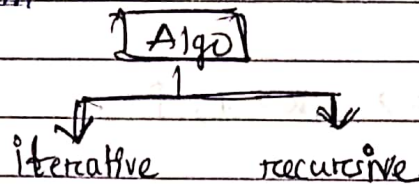 Algo
iterative recursive